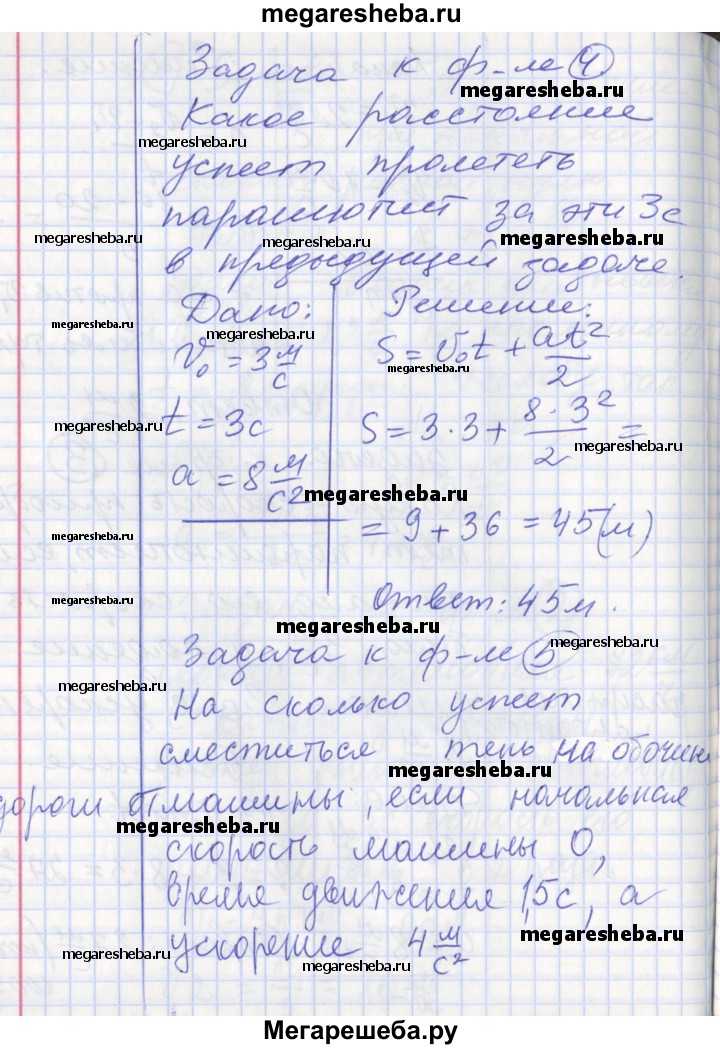 megaresheba.ru
Задача к ф-ле 4
megaresheba.ru
Какое расстояние
megaresheba.ru
успеет пролететь
парашютист за эти 3с
megaresheba.ru megaresheba.ru megaresheba.ru
в предыдущей задаче.
Дано: Решение:
megaresheba.ru megaresheba.ru
V₀ = 3 м/с S = V₀t + at²/2
megaresheba.ru
t = 3с S = 3·3 + 8·3²/2 =
megaresheba.ru megaresheba.ru
a = 8 м/с²
megaresheba.ru
= 9 + 36 = 45(м)
megaresheba.ru
Ответ: 45м.
megaresheba.ru
megaresheba.ru
Задача к ф-ле 5
megaresheba.ru
На сколько успеет
megaresheba.ru
сместиться тень на обочине
megaresheba.ru
дороги от машины, если начальная
megaresheba.ru
скорость машины 0,
megaresheba.ru
время движения 1,5с, а
ускорение 4 м/с²
megaresheba.ru
megaresheba.ru
megaresheba.ru
Мегарешеба.ру